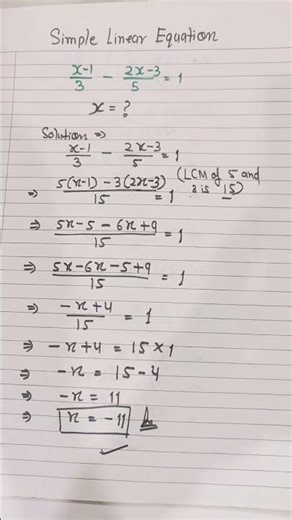 Simple Linear Equation
x-1/3 - 2x-3/5 = 1
x = ?
Solution ⇒
x-1/3 - 2x-3/5 = 1
⇒ 5(x-1) - 3(2x-3)/15 = 1 (LCM of 5 and 3 is 15)
⇒ 5x-5-6x+9/15 = 1
⇒ 5x-6x-5+9/15 = 1
⇒ -x+4/15 = 1
⇒ -x+4 = 15×1
⇒ -x = 15-4
⇒ -x = 11
⇒ x = -11